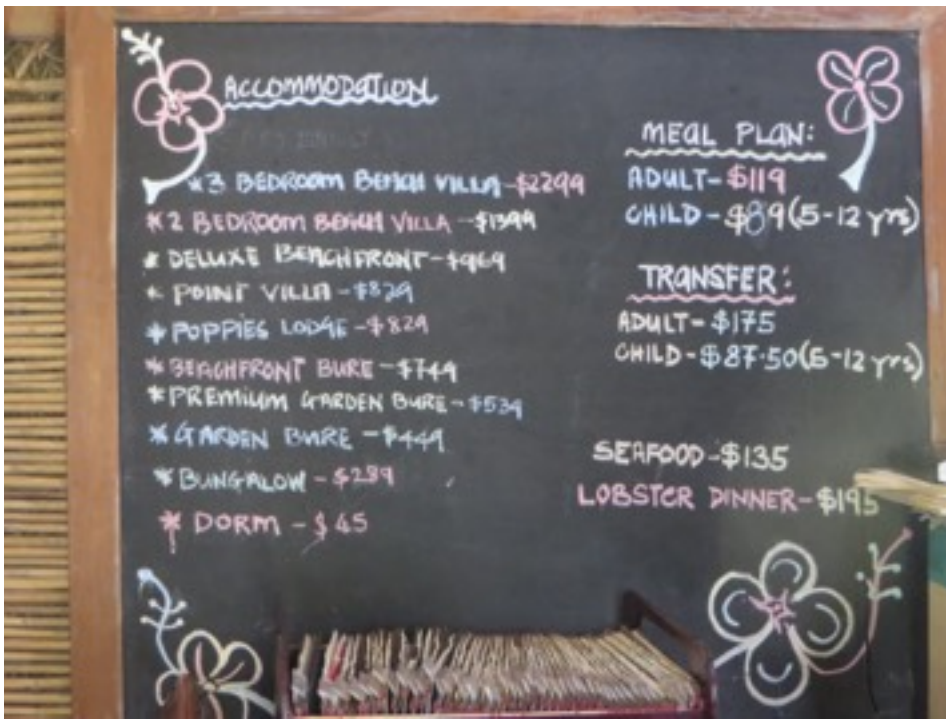 ACCOMMODATION
*3 BEDROOM BEACH VILLA-$2299
*2 BEDROOM BEACH VILLA-$1399
* DELUXE BEACHFRONT-$969
* POINT VILLA-$829
* POPPIES LODGE-$829
*BEACHFRONT BURE-$749
*PREMIUM GARDEN BURE-$539
*GARDEN BURE-$449
*BUNGALOW-$289
* DORM-$45
MEAL PLAN:
ADULT-$119
CHILD-$89(5-12 yrs)
TRANSFER:
ADULT-$175
CHILD-$87.50(5-12 yrs)
SEAFOOD-$135
LOBSTER DINNER-$195